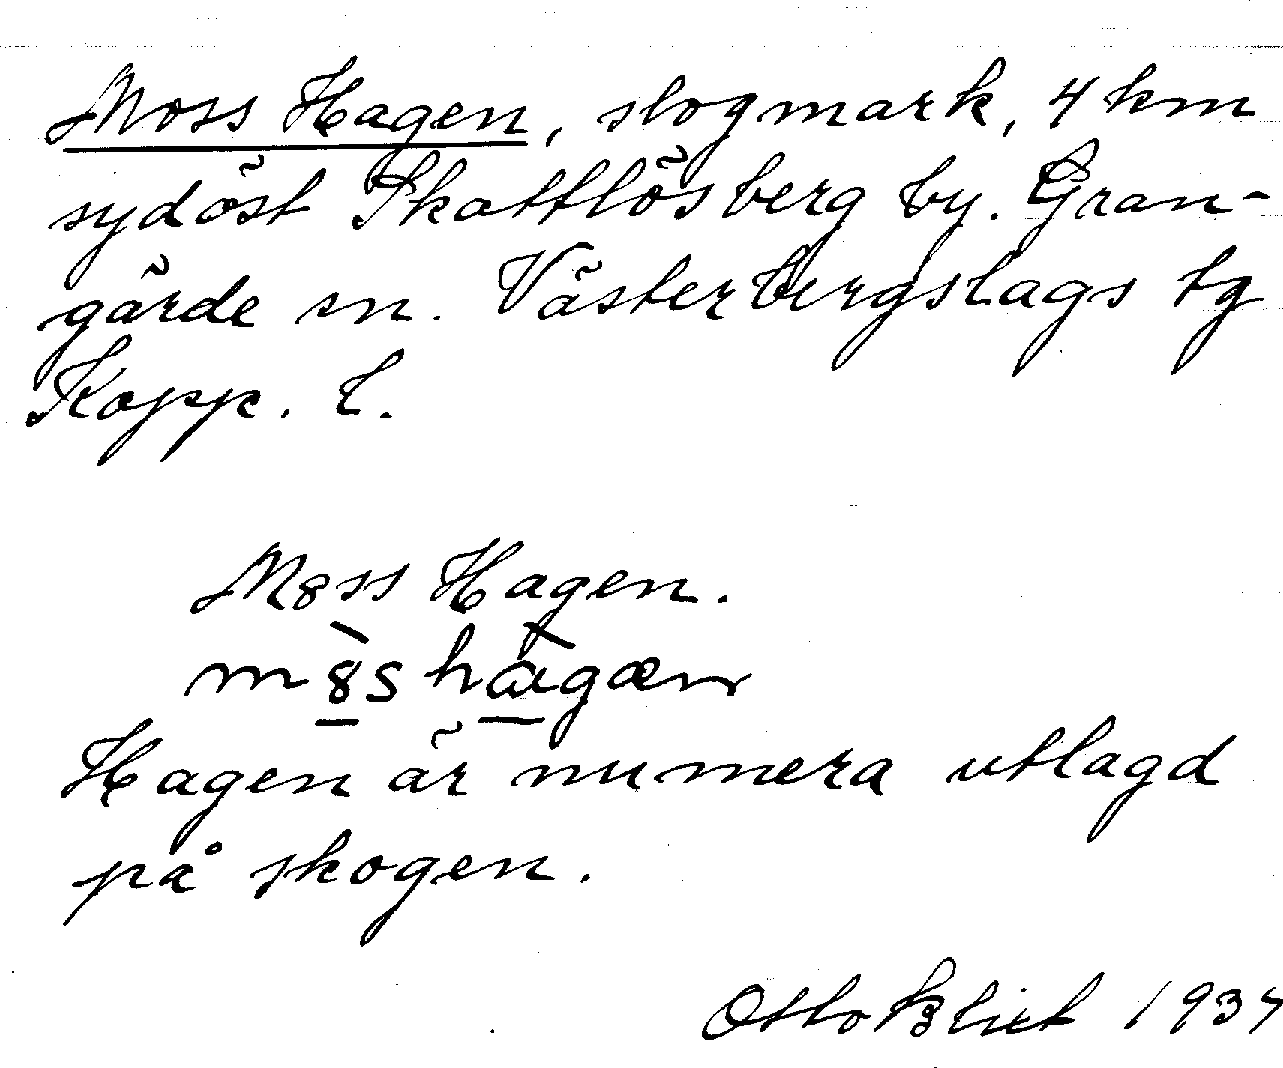 Moss Hagen, slogmark, 4 km
sydöst Skattlösberg by. Gran-
gärde sn. Västerbergslags tg
Kopp. L.
M8ss Hagen.
m8̀s hàgæn
Hagen är numera utlagd
på skogen.
Otto Blixt 1937